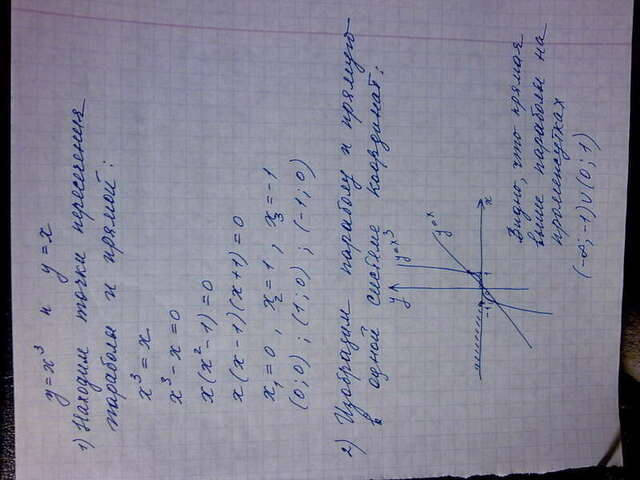 y=x³ и y=x
1) Находим точки пересечения
параболы и прямой:
x³=x
x³-x=0
x(x²-1)=0
x(x-1)(x+1)=0
x₁=0, x₂=1, x₃=-1
(0;0); (1;0); (-1;0)
2) Изобразим параболу и прямую
в одной системе координат:
y
y=x³
y=x
x
-1
1
Видно, что прямая
выше параболы на
промежутках
(-∞;-1)∪(0;1)